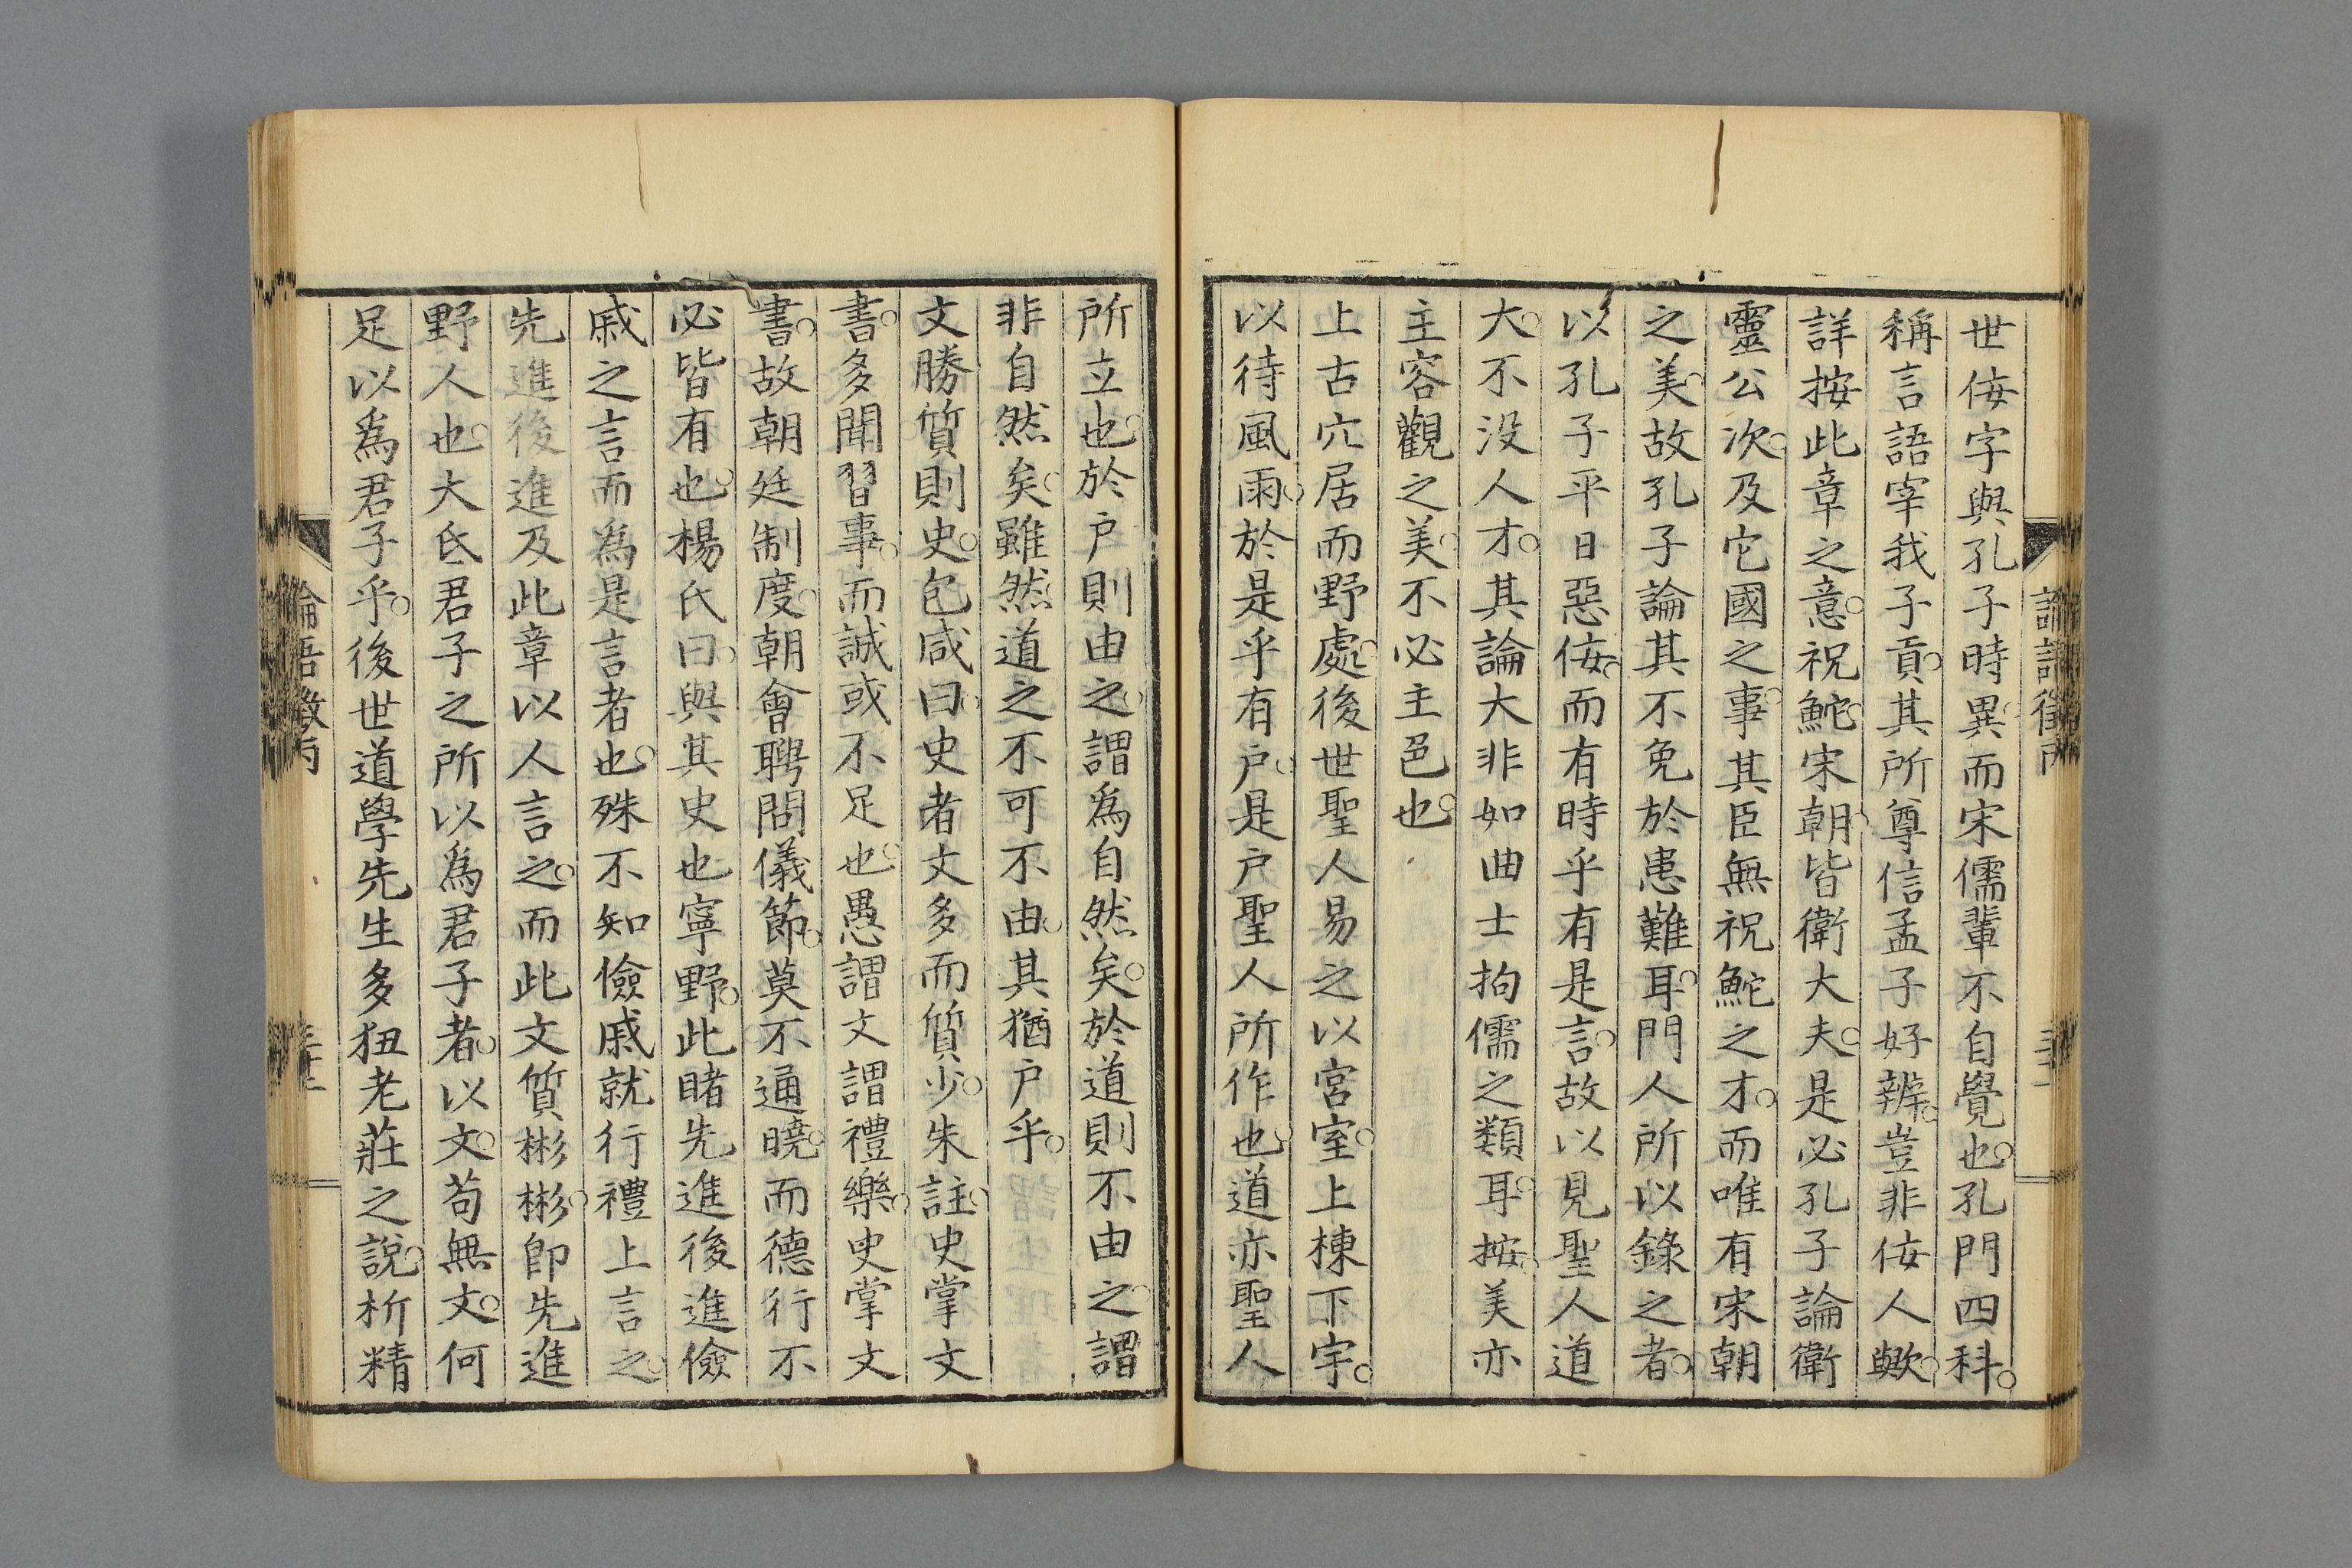 世侫字與孔子時異而宋儒輩不自覺也。孔門四科。
稱言語宰我子貢。其所尊信孟子好辨。豈非侫人歟。
詳按此章之意。祝鮀。宋朝。皆衛大夫。是必孔子論衛
靈公。次及它國之事。其臣無祝鮀之才。而唯有宋朝
之美。故孔子論其不免於患難耳。門人所以錄之者。
以孔子平日惡侫。而有時乎有是言。故以見聖人道
大。不没人才。其論大非如曲士拘儒之類耳。按。美亦
主容觀之美。不必主色也。
上古穴居而野處。後世聖人易之以宮室。上棟下宇。
以待風雨。於是乎有户。是户聖人所作也。道亦聖人
所立也。於户則由之。謂爲自然矣。於道則不由之。謂
非自然矣。雖然。道之不可不由。其猶户乎。
文勝質則史。包咸曰。史者文多而質少。朱註。史掌文
書。多聞習事。而誠或不足也。愚謂文謂禮樂。史掌文
書。故朝廷制度。朝會聘問儀節。莫不通曉。而德行不
必皆有也。楊氏曰。與其史也寧野。此睹先進後進儉
戚之言而爲是言者也。殊不知儉戚就行禮上言之。
先進後進及此章以人言之。而此文質彬彬。卽先進
野人也。大氐君子之所以爲君子者。以文。苟無文。何
足以爲君子乎。後世道學先生多狃老莊之說。析精
論語徵丙